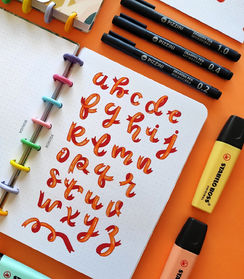 abcde
fghij
klmn
opqr
stuv
wxyz
PIZZINI 1.0
PIZZINI 0.4
PIZZINI 0.2
STABILO BOSS
STABILO BOSS